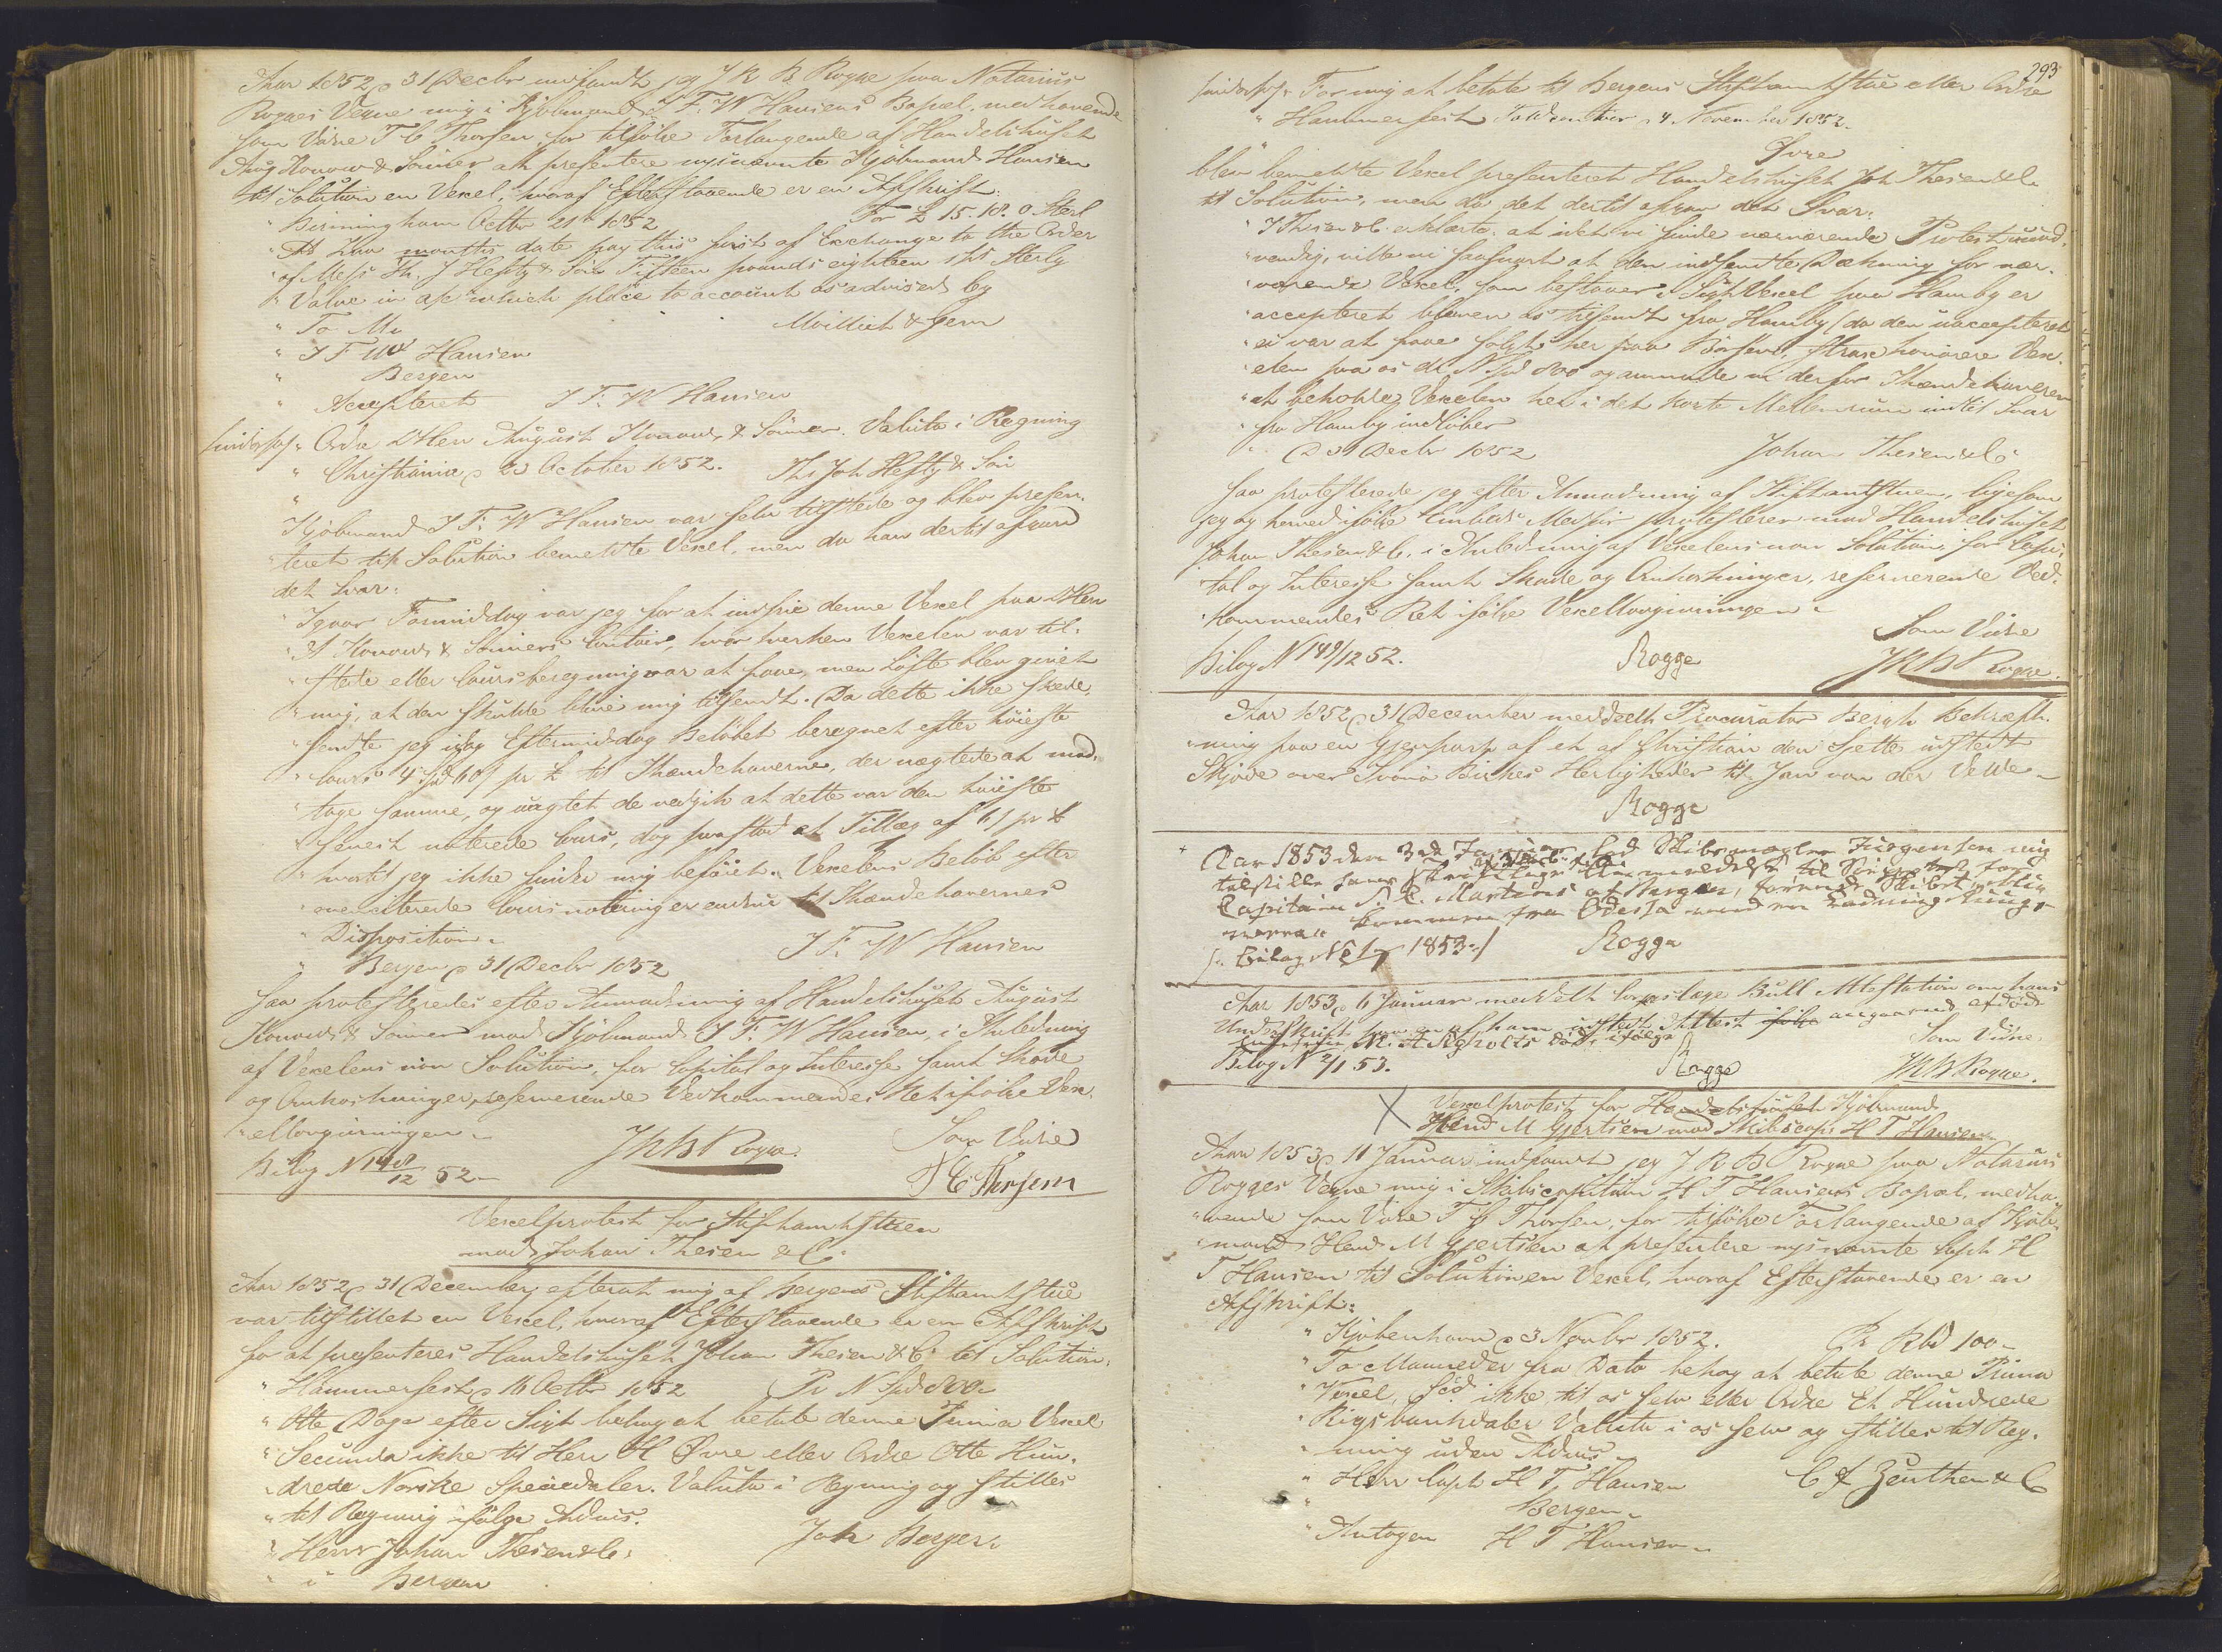 Aar 1852 31 Decbr indfandt jeg J R B Rogge paa Notarius
Rogges Vegne mig i Kjöbmand J. F. W Hansens Bopæl, medhavende
som Vidne T. C. Thorsen for tilfölge Forlangende af Handelshuset
Aug Konow & Sönner at presentere nysnævnte Kjöbmand Hansen
til Solution en Vexel, hvoraf Efterstaaende er en Afskrift:
" Birmingham Octbr 21st 1852 For £ 15. 18. 0 Sterl
" At two months date pay this first of Exchange to the Order
" of Mess Th. J Heftÿ & Sön Fifteen pounds eighteen sh Sterlg
" Value in which place to account as advised by
" To Mr
" J F W Hansen
" Bergen
" Accepteret J. F. W Hansen
Ordre DHerr August Konow & Sönner. Valuta i Regning
" Christiania 23 October 1852. Ths Joh Heftÿ & Sön
Kjöbmand J. F. W Hansen var selv tilstede og blev presen-
teret til Solution bemeldte Vexel, men da han dertil afgav
det Svar:
" Igaar Formiddag var jeg for at indfrie denne Vexel paa DHerr
" A Konow & Sönners Contoir, hvor hverken Vexelen var til-
" stede eller Coursberegning var at faae, men Löfte blev givet
" mig, at den skulde blive mig tilsendt. Da dette ikke skede,
" sendte jeg idag Eftermiddag Belöbet beregnet efter höieste
" Cours 4 Spd 60 s pr £ til Ihændehaverne, der nægtede at mod-
" tage samme, og uagtet de vedgik at dette var den höieste
" senest noterede Cours, dog paastod et Tillæg af 6 s pr £
" hvortil jeg ikke finder mig beföiet. Vexelens Belöb efter
" ovenciterede Coursnotering er endnu til Ihændehavernes
" Disposition.
" Bergen 31 Decbr 1852 J. F. W Hansen
saa protesteredes efter Anmodning af Handelshuset August
Konow & Sönner mod Kjöbmand J. F. W Hansen, i Anledning
af Vexelens non Solution, for Capital og Interesse samt Skade
og Omkostninger, reserverende Vedkommendes Ret ifölge Vex-
ellovgivningen.
Bilag N 148/12 52. JRB Rogge. Som Vidne
T C Thorsen
Vexelprotest for Stiftamtstuen
mod Johan Thesen & Co.
Aar 1852 31 December, efterat mig af Bergens Stiftamtstue
var tilstillet en Vexel, hvoraf Efterstaaende er en Afskrift
for at presenteres Handelshuset Johan Thesen & Co til Solution:
" Hammerfest 16 Octbr 1852 Pr N Spd 800.
" Otte Dage efter Sigt behag at betale denne Prima Vexel
" Secunda ikke til Herr H Øvre eller Ordre Otte Hun-
" drede Norske Speciedaler. Valuta i Regning og stilles
" til Regning ifölge Advis.
" Herrr Johan Thesen & Co. Joh Berger.
" i Bergen
293
" For mig at betale til Bergens Stiftamtstue eller Ordre
" Hammerfest Toldcontoir 4 November 1852.
Øvre
blev bemeldte Vexel presenteret Handelshuset Joh Thesen & Co.
til Solution, men da det dertil afgav det Svar:
" J Thesen & Co. erklærte: at idet vi finde nærværende Protest nöd-
" vendig, ville vi saasnart at den indsendte Dækning for nær-
" værende Vexel, som bestaaer i Sigt Vexel paa Hambg er
" accepteret bleven os tilsendt fra Hambg (da den uaccepteret
" ei var at faae solgt her paa Börsen), strax honorere Vex-
" elen paa os de N Spd 800 og anmode vi derfor Ihændehaveren
" at beholde Vexelen her i det korte Mellemrum indtil Svar
" fra Hambg indlöber
" D 31 Decbr 1852 Johan Thesen & Co
saa protesterede jeg efter Anmodning af Stiftamtstuen, ligesom
jeg og herved ifölge Embeds Medför protesterer mod Handelshuset
Johan Thesen & C. i Anledning af Vexelens non Solution, for Capi-
tal og Interesse samt Skade og Omkostninger, reserverende Ved-
kommendes Ret ifölge Vexellovgivningen.
Bilag N 149/12 52. Rogge Som Vidne
JRB Rogge.
Aar 1852 31 December meddeelt Procurator Bergh Bekræft-
ning paa en Gjenpart af et af Christian den sjette udstedt
Skjöde over Svanö Birkes Herligheder til Jan van der Velde.
Rogge
Aar 1853 den 3de Januar lod Skibsmægler Jürgensen mig
tilstille
Capitain S. C. Martens af Bergen, förende Skibet
kommen fra Odessa med en Ladning
Bilag No 1/1 1853 Rogge
Aar 1853 6 Januar meddelt Corpslæge Büll Attestation om hans
Underskrift paa en af ham udstedt Attest angaaende afdöde
död, ifölge
Bilag N 2/1 53. Rogge Som Vidne
JRB Rogge.
Vexelprotest for Handelshuset Kjöbmand
Hend M Gjertsen mod Skibscapt H T Hansen.
Aar 1853 11 Januar indfandt jeg J R B Rogge paa Notarius
Rogges Vegne mig i Skibscapitain H T Hansens Bopæl, medha-
vende som Vidne T C Thorsen, for tilfölge Forlangende af Kjöb-
mand Hend M Gjertsen at presentere nysnævnte Capt H
T Hansen til Solution en Vexel, hvoraf Efterstaaende er en
Afskrift:
" Kjöbenhavn 3 Novbr 1852. Pr Rbd 100.
" To Maaneder fra Dato behag at betale denne Prima
" Vexel, Scda ikke, til os selv eller Ordre Et Hundrede
" Rigsbankdaler Valuta i os selv og stilles til Reg-
" ning uden Advis
" Herr Capt H T Hansen C F Zeuthen & C
" Bergen.
" Antagen H T Hansen.